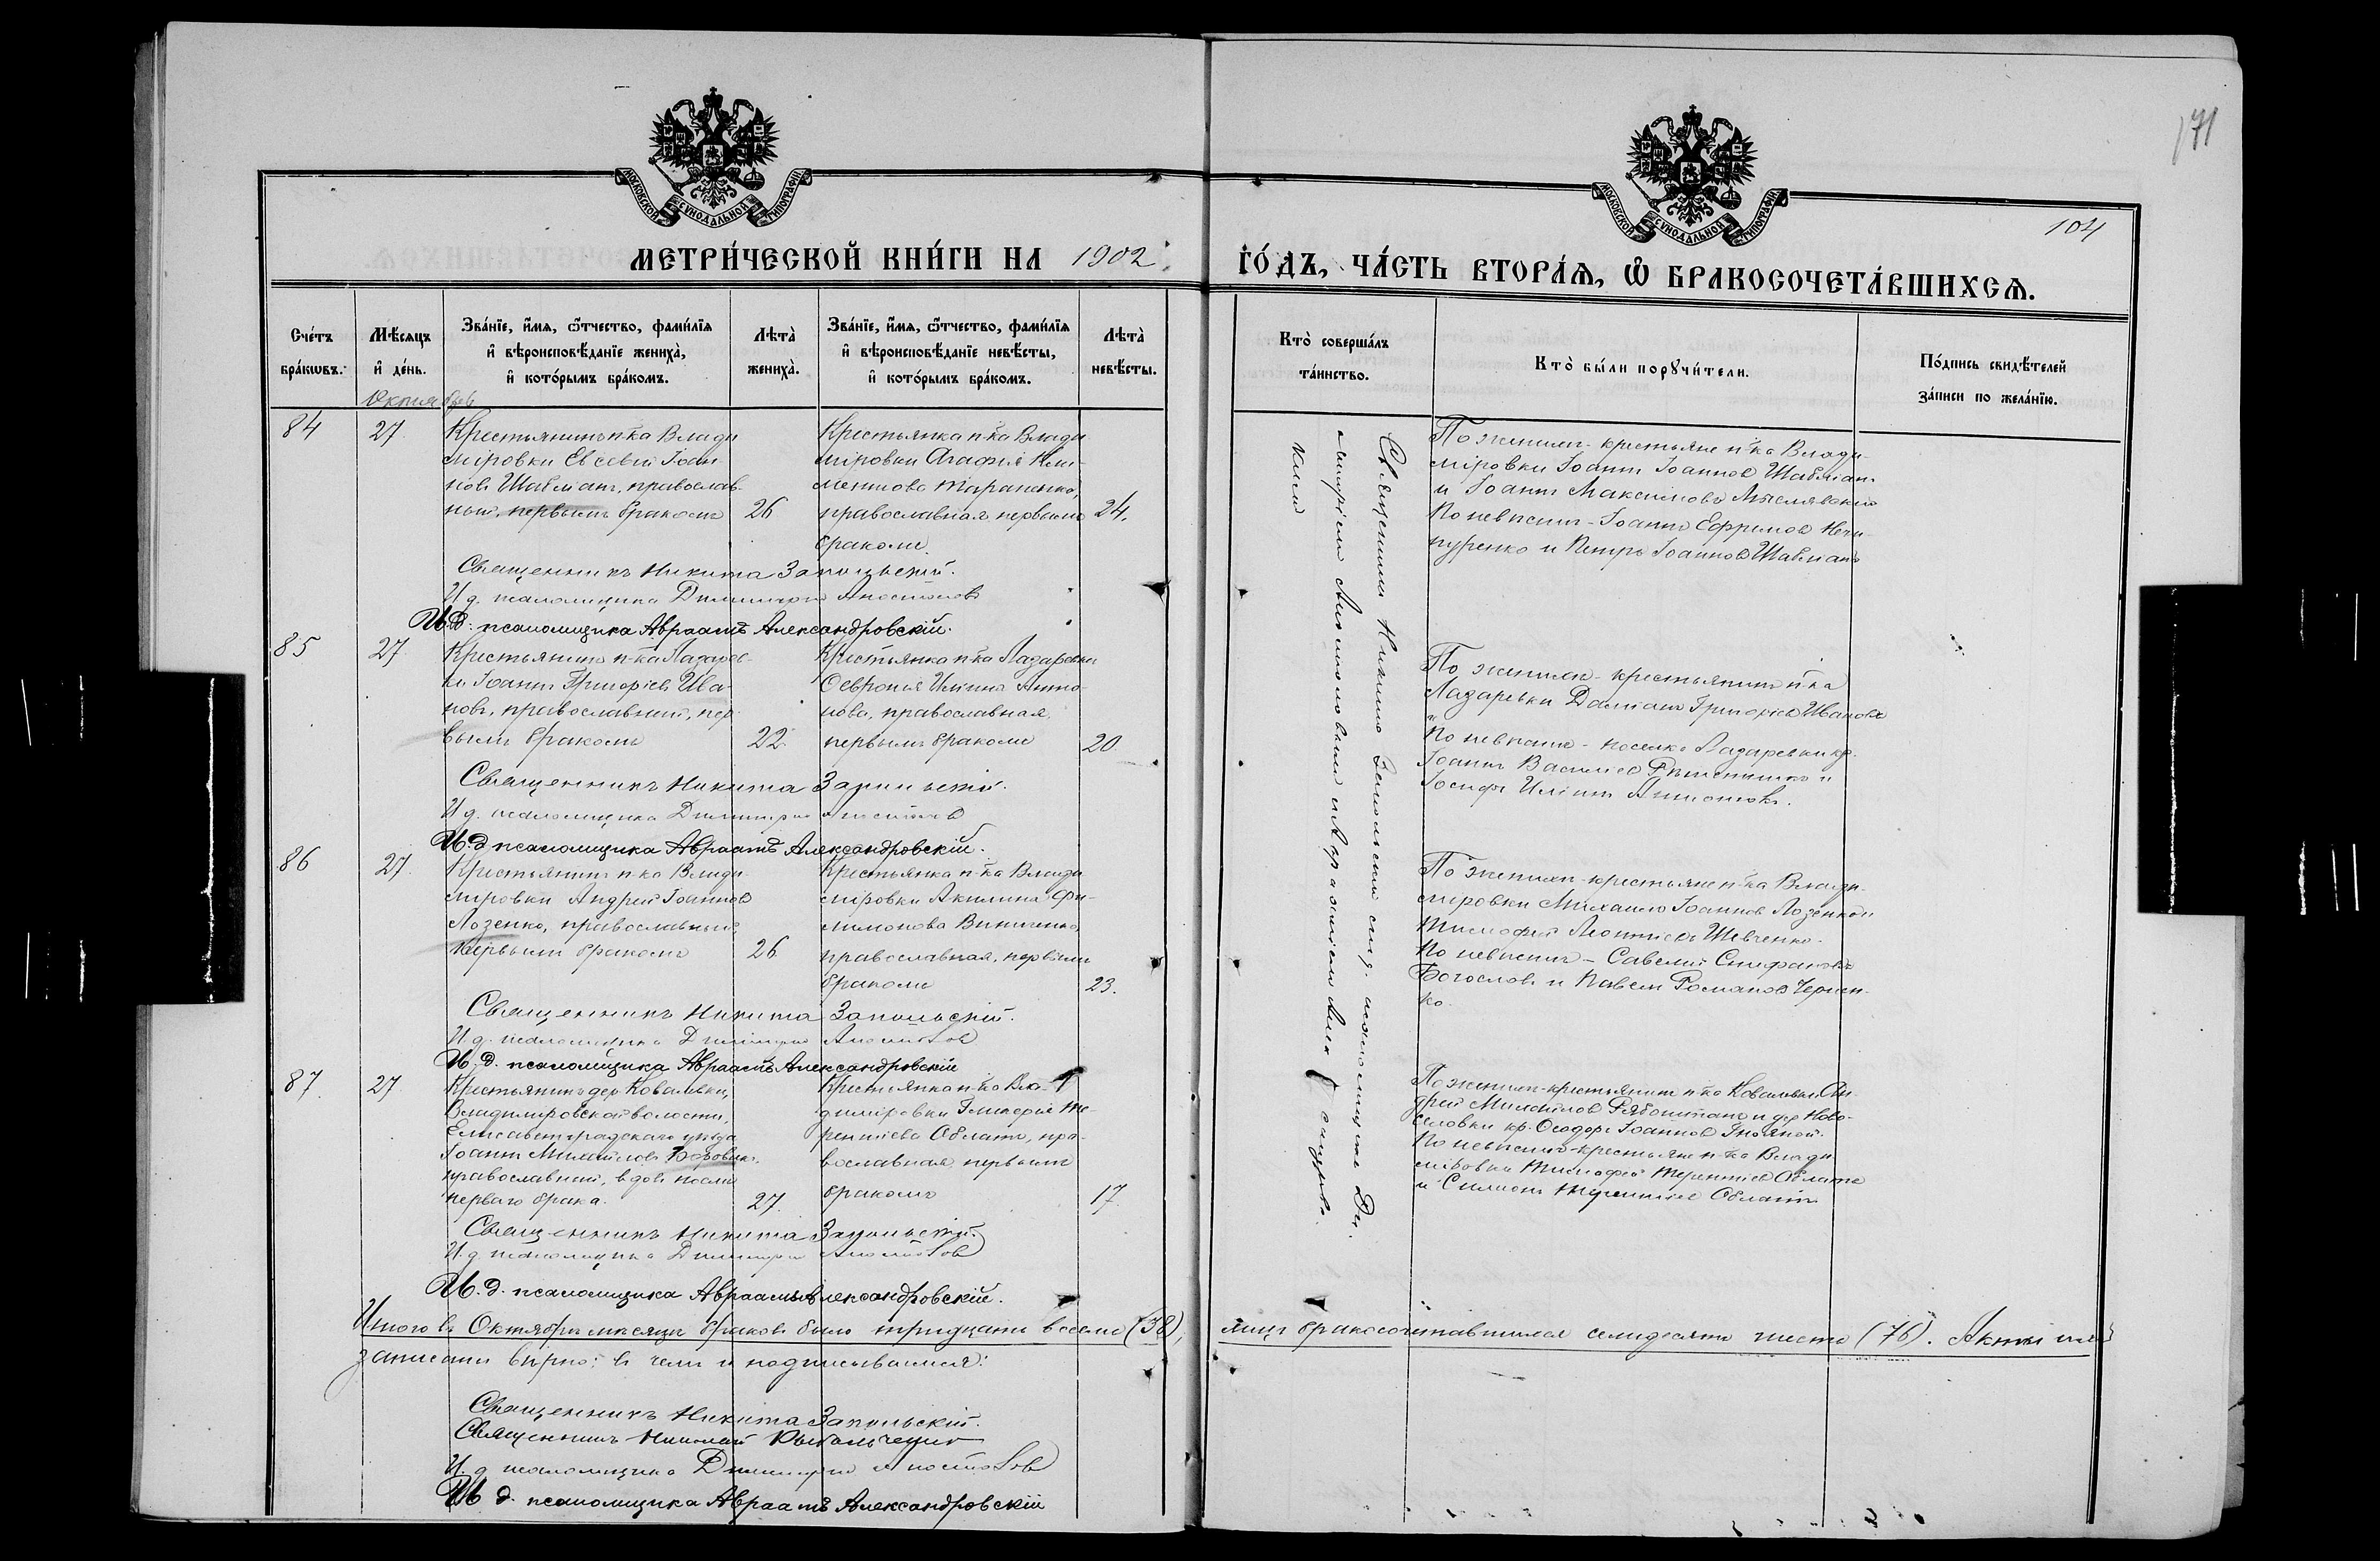 171
104
МОСКОВСКОЙ СѴНОДАЛЬНОЙ ТИПОГРАФІИ
МОСКОВСКОЙ СѴНОДАЛЬНОЙ ТИПОГРАФІИ
МЕТРИ́ЧЕСКОЙ КНИ́ГИ НА 1902
ГО́ДЪ, ЧА́СТЬ ВТОРА́Ѧ, Ѽ БРАКОСОЧЕТА́ВШИХСѦ.
Сче́тъ бра́кѡвъ.
Мѣ́сяцъ и҆ де́нь.
Зва́нїе, и҆́мѧ, ѻ҆́тчество, фами́лїѧ и҆ вѣроисповѣ́данїе жениха̀, и҆ кото́рымъ бра́комъ.
Лѣта̀ жениха̀.
Зва́нїе, и҆́мѧ, ѻ҆́тчество, фами́лїѧ и҆ вѣроисповѣ́данїе невѣ́сты, и҆ кото́рымъ бра́комъ.
Лѣта̀ невѣ́сты.
Кто̀ соверша́лъ та́инство.
Кто̀ бы́ли порꙋчи́тели.
По́дпись свидѣ́телей за́писи по жела́нїю.
Октябрь
84
27
Крестьянинъ п-ка Влади
міровки Евсевій Іоан-
новъ Шабліанъ, православ-
ный, первымъ бракомъ
26
Крестьянка п-ка Влади
міровки Агафія Кли-
ментова Тараненко,
православная первымъ
бракомъ
24.
По женихѣ - крестьяне п-ка Влади-
міровки Іоаннъ Іоанновъ Шабліанъ
и Іоаннъ Максимовъ
По невѣстѣ - Іоаннъ Ефремовъ Нечи
пуренко и Петръ Іоанновъ Шабліанъ
Священникъ Никита Запольскій.
И. д. псаломщика Димитрій Апостоловъ
И. д. псаломщика Авраамъ Александровскій.
85
27
Крестьянинъ п-ка Лазарев-
ки Іоаннъ Григоріевъ Ива-
новъ, православный, пер
вымъ бракомъ
22
Крестьянка п-ка Лазаревки
Февронія Иліина Анто-
нова, православная,
первымъ бракомъ
20
По женихѣ - крестьянинъ п-ка
Лазаревки Даміанъ Григоріевъ Ивановъ
По невѣстѣ - поселка Лазаревки кр.
Іоаннъ Василіевъ и
Іосифъ Иліинъ Антоновъ.
Священникъ Никита Запольскій.
И. д. псаломщика Димитрій Апостоловъ
И. д. псаломщика Авраамъ Александровскій.
86
27
Крестьянинъ п-ка Влади-
міровки Андрей Іоанновъ
Лозенко, православный,
первымъ бракомъ
26
Крестьянка п-ка Влади
міровки Акилина Фи-
лимонова Винниченко,
православная, первымъ
бракомъ
23.
По женихѣ - крестьяне п-ка Влади-
міровки Михаилъ Іоанновъ Лозенко и
Тимофей Леонтіевъ Шевченко.
По невѣстѣ - Савелій Стефановъ
Богословъ и Павелъ Романовъ Чернен-
ко.
Священникъ Никита Запольскій.
И. д. псаломщика Димитрій Апостоловъ
И. д. псаломщика Авраамъ Александровскій
87.
27
Крестьянинъ дер. Ковалевки,
Владиміровской волости,
Елисаветградскаго уѣзда
Іоаннъ Михайловъ Боровикъ,
православный, вдовъ послѣ
перваго брака.
27.
Крестьянка п-ка Вла-
диміровки Гликерія Те-
рентіева Облатъ, пра-
вославная первымъ
бракомъ
17
По женихѣ - крестьянинъ п-ка Ковалевки Ан-
дрей Михайловъ и дер. Ново-
селовки кр. Ѳеодоръ Іоанновъ Гноявой.
По невѣстѣ - крестьяне п-ка Влади
міровки Тимофей Терентіевъ Облатъ
и Симеонъ Терентіевъ Облатъ
Священникъ Никита Запольскій.
И. д. псаломщика Димитрій Апостоловъ
И. д. псаломщика Авраамъ Александровскій.
Священникъ Никита Запольскій съ и. д. псаломщика Ди-
митріемъ Апостоловымъ и Авраамомъ Александров-
скимъ
Итого въ Октябрѣ мѣсяцѣ браковъ было тридцать восемь (38), лицъ бракосочетавшихся семьдесятъ шесть (76). Акты сіи
записаны вѣрно: въ чемъ и подписываемся:
Священникъ Никита Запольскій.
Священникъ Николай Рыбальченко
И. д. псаломщика Димитрій Апостоловъ
И. д. псаломщика Авраамъ Александровскій